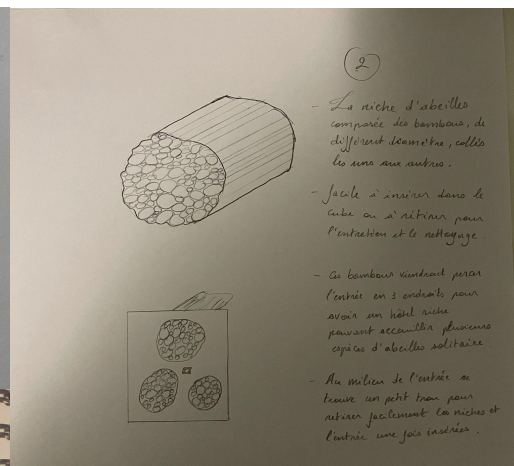 2
- La niche d'abeilles
composée des bambous, de
différent diamètre, collés
les uns aux autres.
- facile à insérer dans le
cube ou à retirer pour
l'entretien et le nettoyage.
- Ces bambous viendront percer
l'entrée en 3 endroits pour
avoir un hôtel niche
pouvant accueillir plusieurs
espèces d'abeilles solitaire
- Au milieu de l'entrée se
trouve un petit trou pour
retirer facilement les niches et
l'entrée une fois insérées.